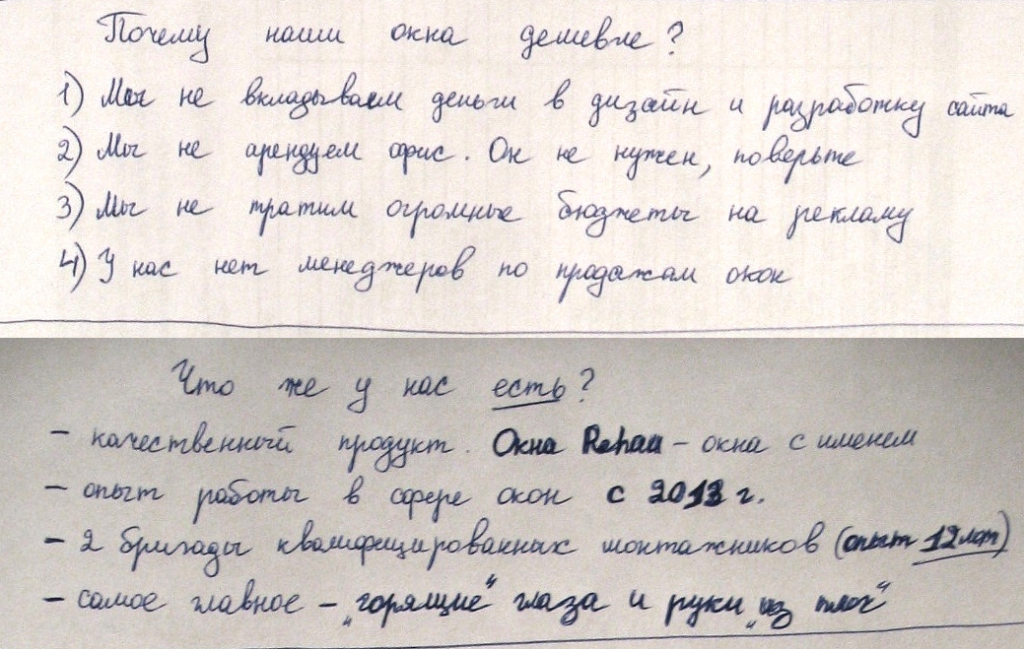 Почему наши окна дешевле?
1) Мы не вкладываем деньги в дизайн и разработку сайта
2) Мы не арендуем офис. Он не нужен, поверьте
3) Мы не тратим огромные бюджеты на рекламу
4) У нас нет менеджеров по продажам окон
Что же у нас есть?
- качественный продукт. Окна Rehau - окна с именем
- опыт работы в сфере окон с 2013 г.
- 2 бригады квалифицированных монтажников (опыт 12 лет)
- самое главное - "горящие" глаза и руки "из плеч"